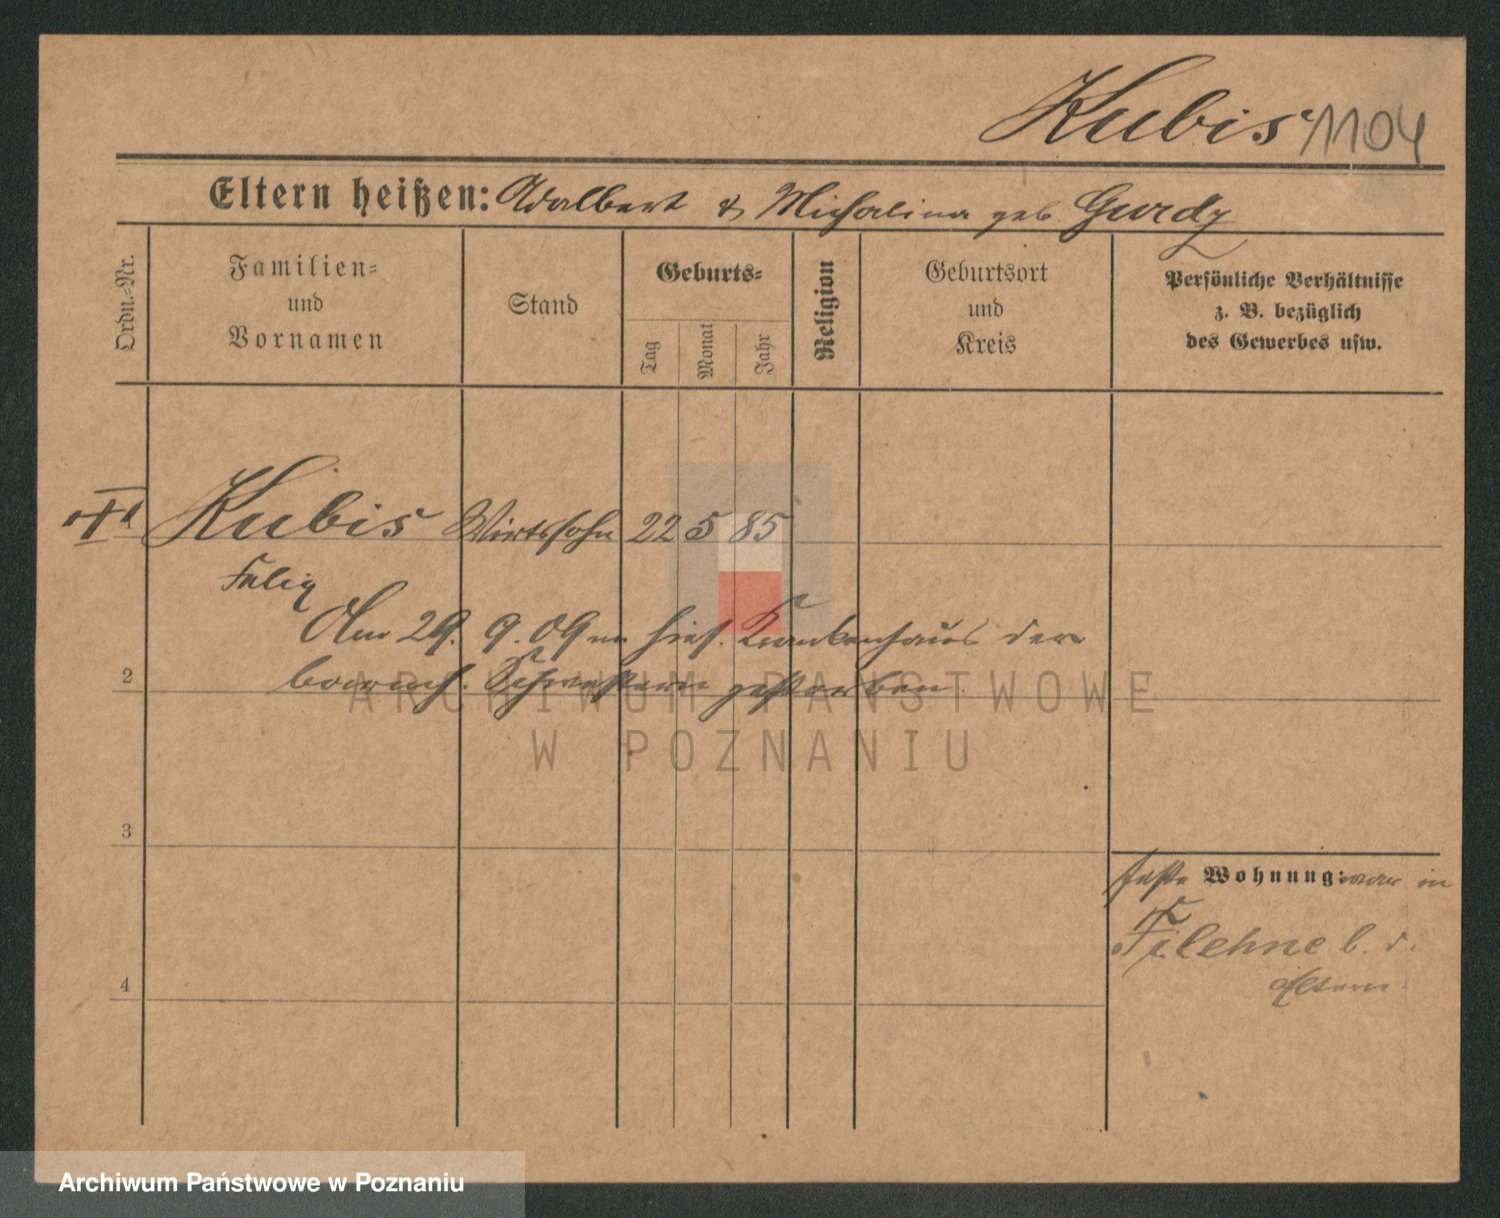 Kubis 1104
Eltern heißen: Adalbert & Michalina geb. Gurdz
Ordn.-Nr.
Familien=
und
Vornamen
Stand
Geburts=
Tag
Monat
Jahr
Religion
Geburtsort
und
Kreis
Persönliche Verhältnisse
z. B. bezüglich
des Gewerbes usw.
Kubis Wirtssohn 22 5 85
Felix
Am 29. 9. 09 im hies. Krankenhaus der
barmh. Schwestern gestorben.
2
3
4
feste Wohnung: war in
Filehne b. d.
Eltern.
ARCHIWUM PAŃSTWOWE
W POZNANIU
Archiwum Państwowe w Poznaniu